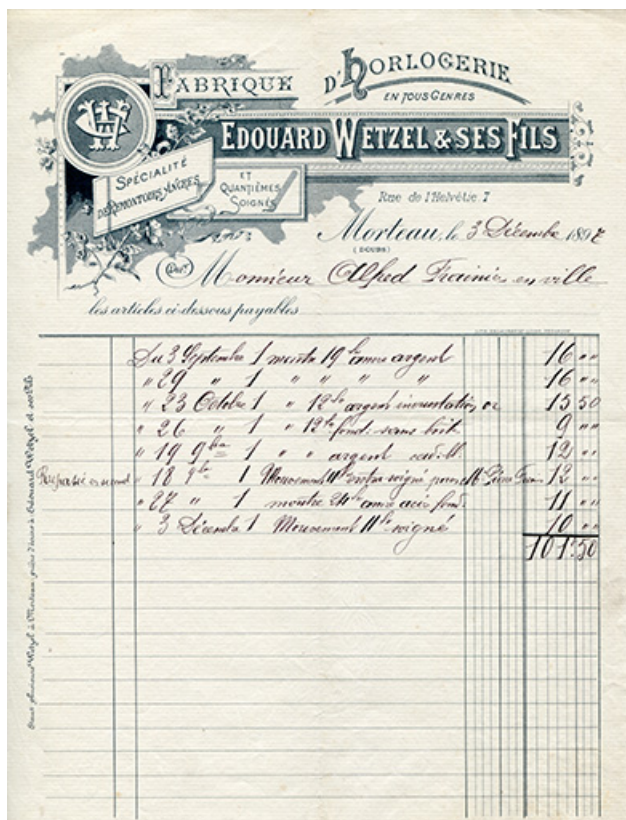 FABRIQUE D'HORLOGERIE
EN TOUS GENRES
EDOUARD WETZEL & SES FILS
SPÉCIALITÉ
DE REMONTOIRS ANCRES
ET
QUANTIÈMES
SOIGNÉS
Rue de l'Helvétie 7
Morteau, le 3 Décembre 1897
(DOUBS)
Doit
Monsieur Alfred en ville
les articles ci-dessous payables
Du 3 Septembre 1 montre 19 argent 16 " "
" 29 " 1 " " " " 16 " "
" 23 Octobre 1 " 12 argent incrustation or 15 50
" 26 " 1 " 12 fond. sans boîte 9 " "
" 19 9bre 1 " " argent 12 " "
Repassé en second " 18 9bre 1 Mouvement 11 extra soigné pour Mr 12 " "
" 27 " 1 montre acier 11 " "
" 3 Décembre 1 Mouvement 11 soigné 10 " "
101 50
Wetzel à Morteau, prière d'écrire à Edouard Wetzel et ses Fils